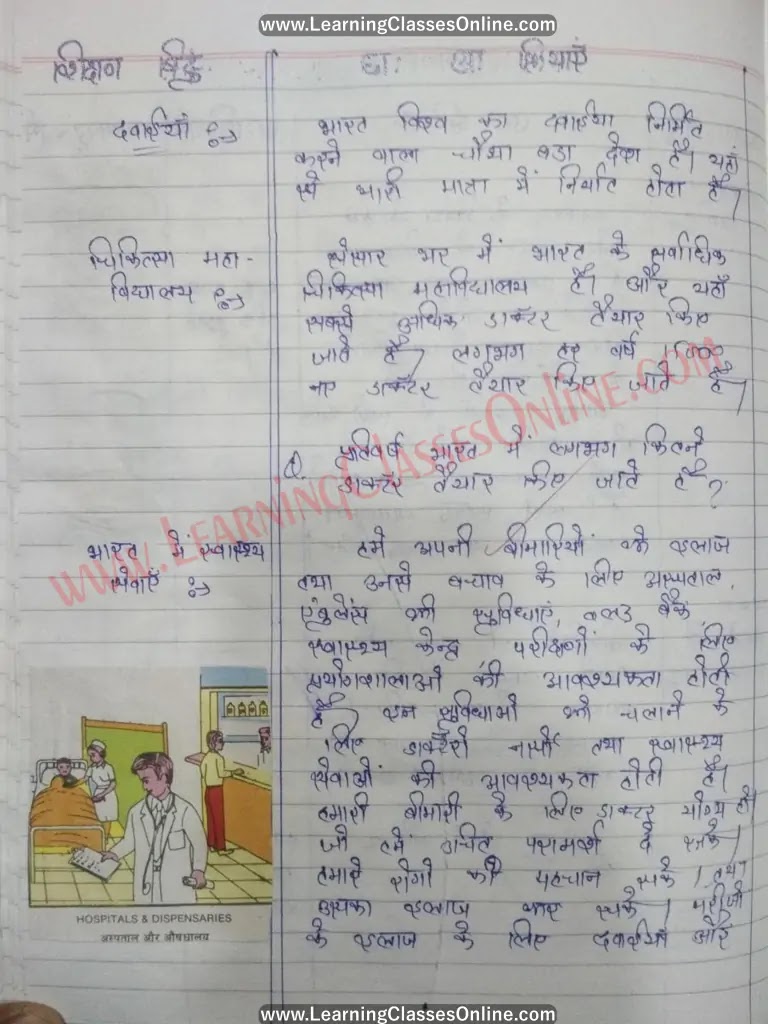 www.LearningClassesOnline.com
शिक्षण बिंदु
छा. अ. क्रियाएं
दवाईयाँ
भारत विश्व का दवाईया निर्मित
करने वाला चौथा बडा देश है। यहां
से भारी मात्रा में निर्यात होता है।
चिकित्सा महा-
विद्यालय
संसार भर में भारत के सर्वाधिक
चिकित्सा महाविद्यालय है। और यहाँ
सबसे अधिक डाक्टर तैयार किए
जाते है। लगभग हर वर्ष
नए डाक्टर तैयार किए जाते है।
Q. प्रतिवर्ष भारत में लगभग कितने
डाक्टर तैयार किए जाते है?
भारत में स्वास्थ्य
सेवाएं
हमे अपनी बीमारियों के इलाज
तथा उनसे बचाव के लिए अस्पताल,
एंबुलेंस की सुविधाएं, बलड बैंक,
स्वास्थ्य केन्द्र परीक्षणों के लिए
प्रयोगशालाओं की आवश्यकता होती
है। इन सुविधाओ को चलाने के
लिए डाक्टरो नर्सो तथा स्वास्थ्य
सेवाओं की आवश्यकता होती है।
हमारी बीमारी के लिए डाक्टर योग्य हो।
जो हमें उचित परामर्श दे सके।
हमारे रोगो की पहचान सके। तथा
उसका इलाज कर सके। मरीजो
के इलाज के लिए दवाईयां और
HOSPITALS & DISPENSARIES
अस्पताल और औषधालय
www.LearningClassesOnline.com
www.LearningClassesOnline.com